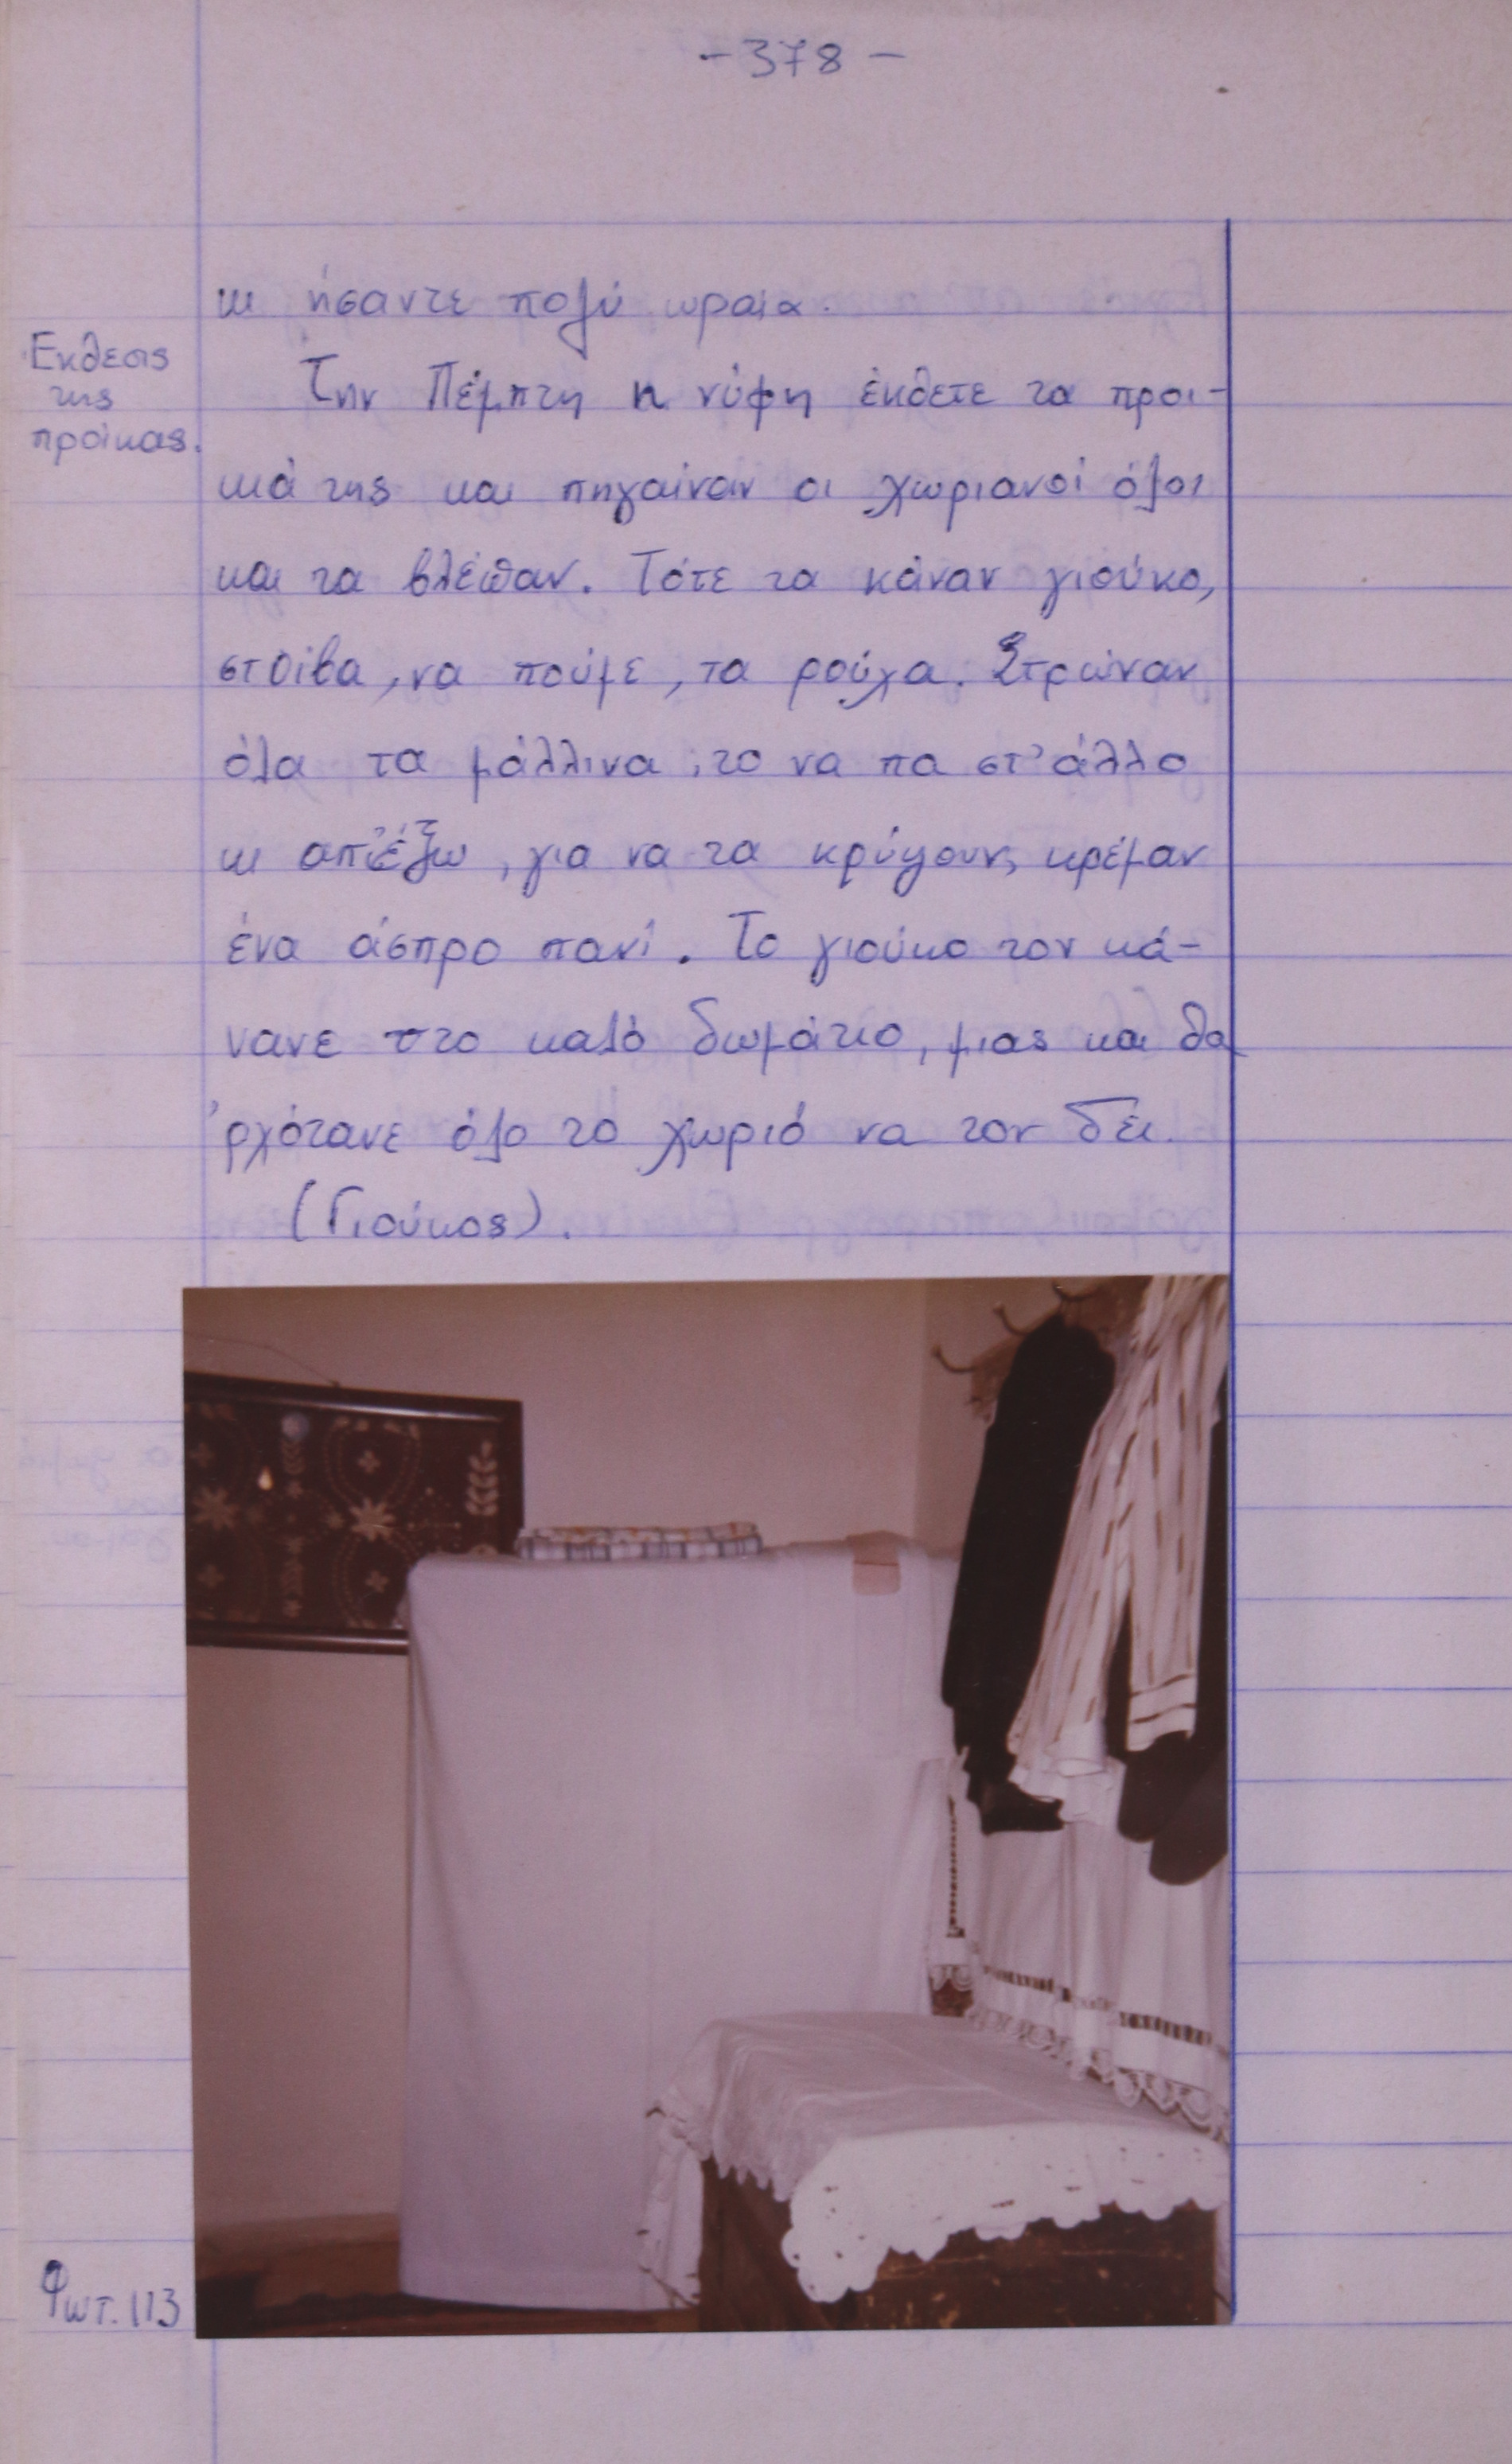 -378-
κι ήσαντε πολύ ωραία.
Έκθεσις
της
προίκας.
Την Πέμπτη η νύφη έκθετε τα προι-
κιά της και πηγαίναν οι χωριανοί όλοι
και τα βλέπαν. Τότε τα κάναν γιούκο,
στοίβα, να πούμε, τα ρούχα. Στρώναν
όλα τα μάλλινα, το να πα στ' άλλο
κι απ' έξω, για να τα κρύψουν, κρέμαν
ένα άσπρο πανί. Το γιούκο τον κά-
νανε στο καλό δωμάτιο, μιας και θα
'ρχότανε όλο το χωριό να τον δει.
(Γιούκος).
Φωτ. 113